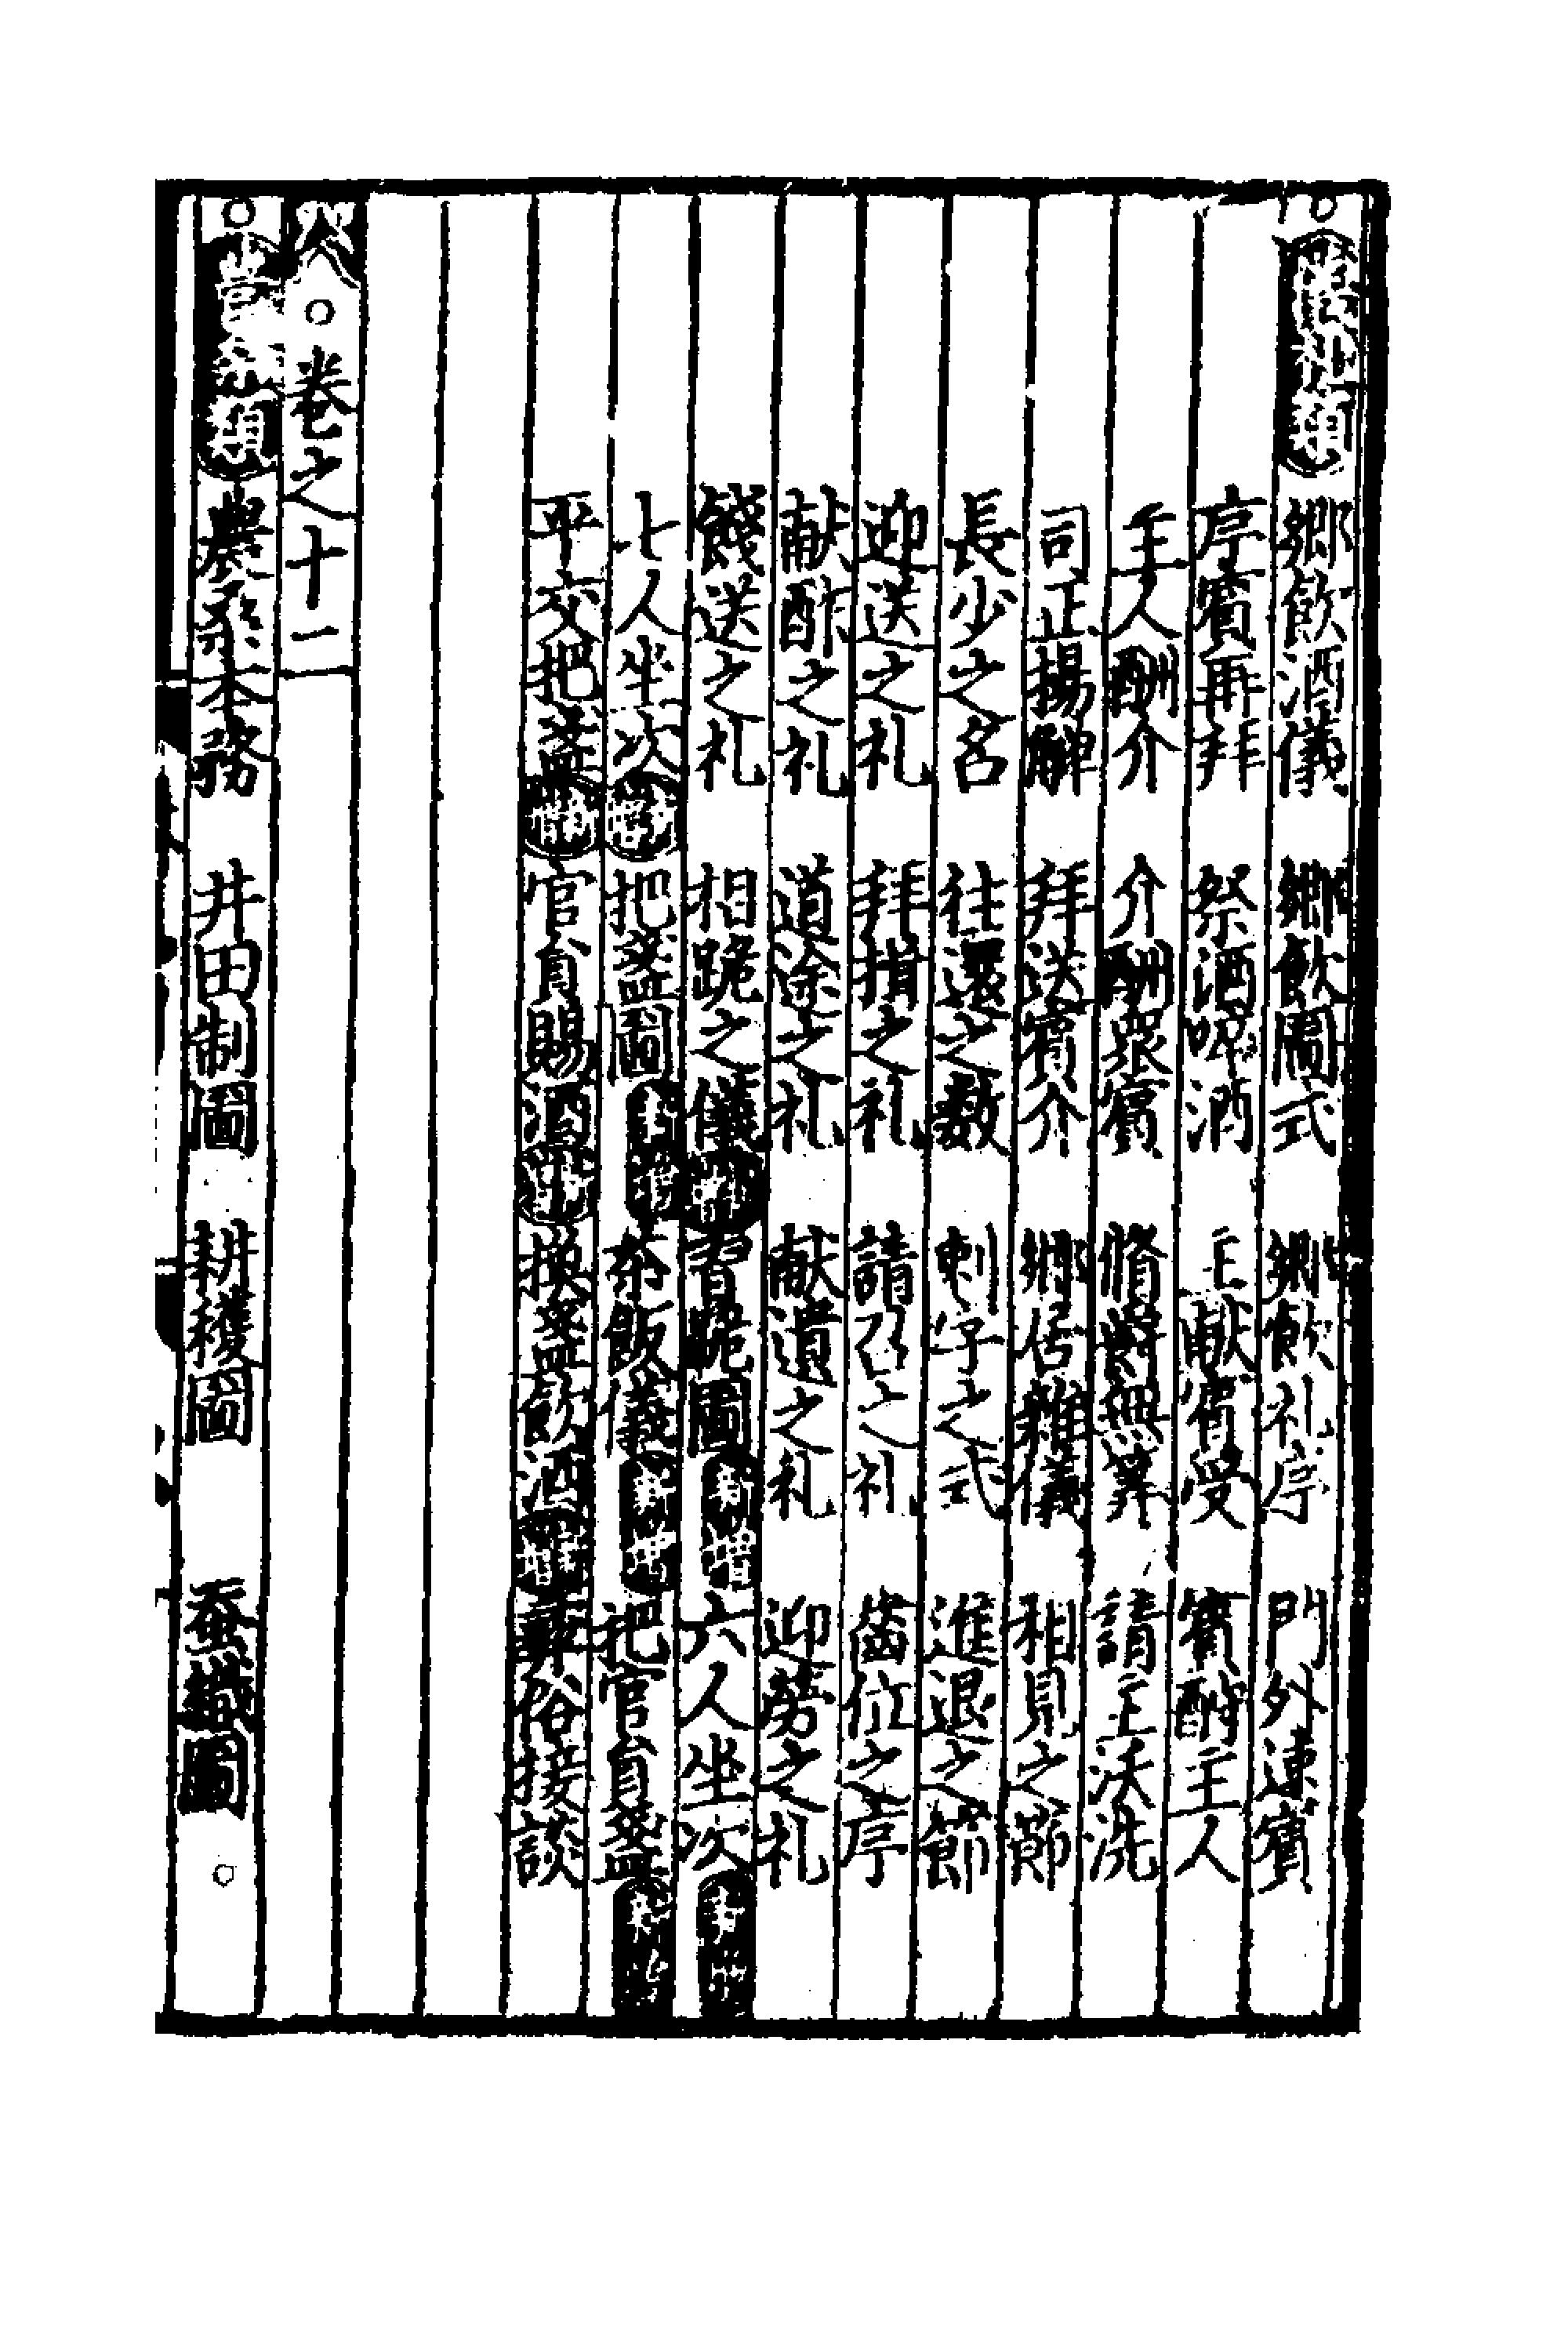 ○ 禮類 鄉飲酒儀 鄉飲圖式 鄉飲礼序 門外速賓
序賓再拜 祭酒啐酒 主獻賓受 賓酢主人
主人酬介 介酬衆賓 脩爵無筭 請主沃洗
司正揚觶 拜送賓介 鄉居雜儀 相見之節
長少之名 往還之數 刺字之式 進退之節
迎送之礼 拜揖之礼 請召之礼 齒位之序
献酢之礼 道途之礼 献遺之礼 迎勞之礼
餞送之礼 相跪之儀 新增 習跪圖 新增 六人坐次 新增
七人坐次 新增 把盞圖 新增 茶飯儀 新增 把官員盞 新增
平交把盞 新增 官員賜酒 新增 換盞飲酒 新增 彝俗接談
○卷之十二
○ 農桑類 農桑本務 井田制圖 耕穫圖 蚕織圖 ○